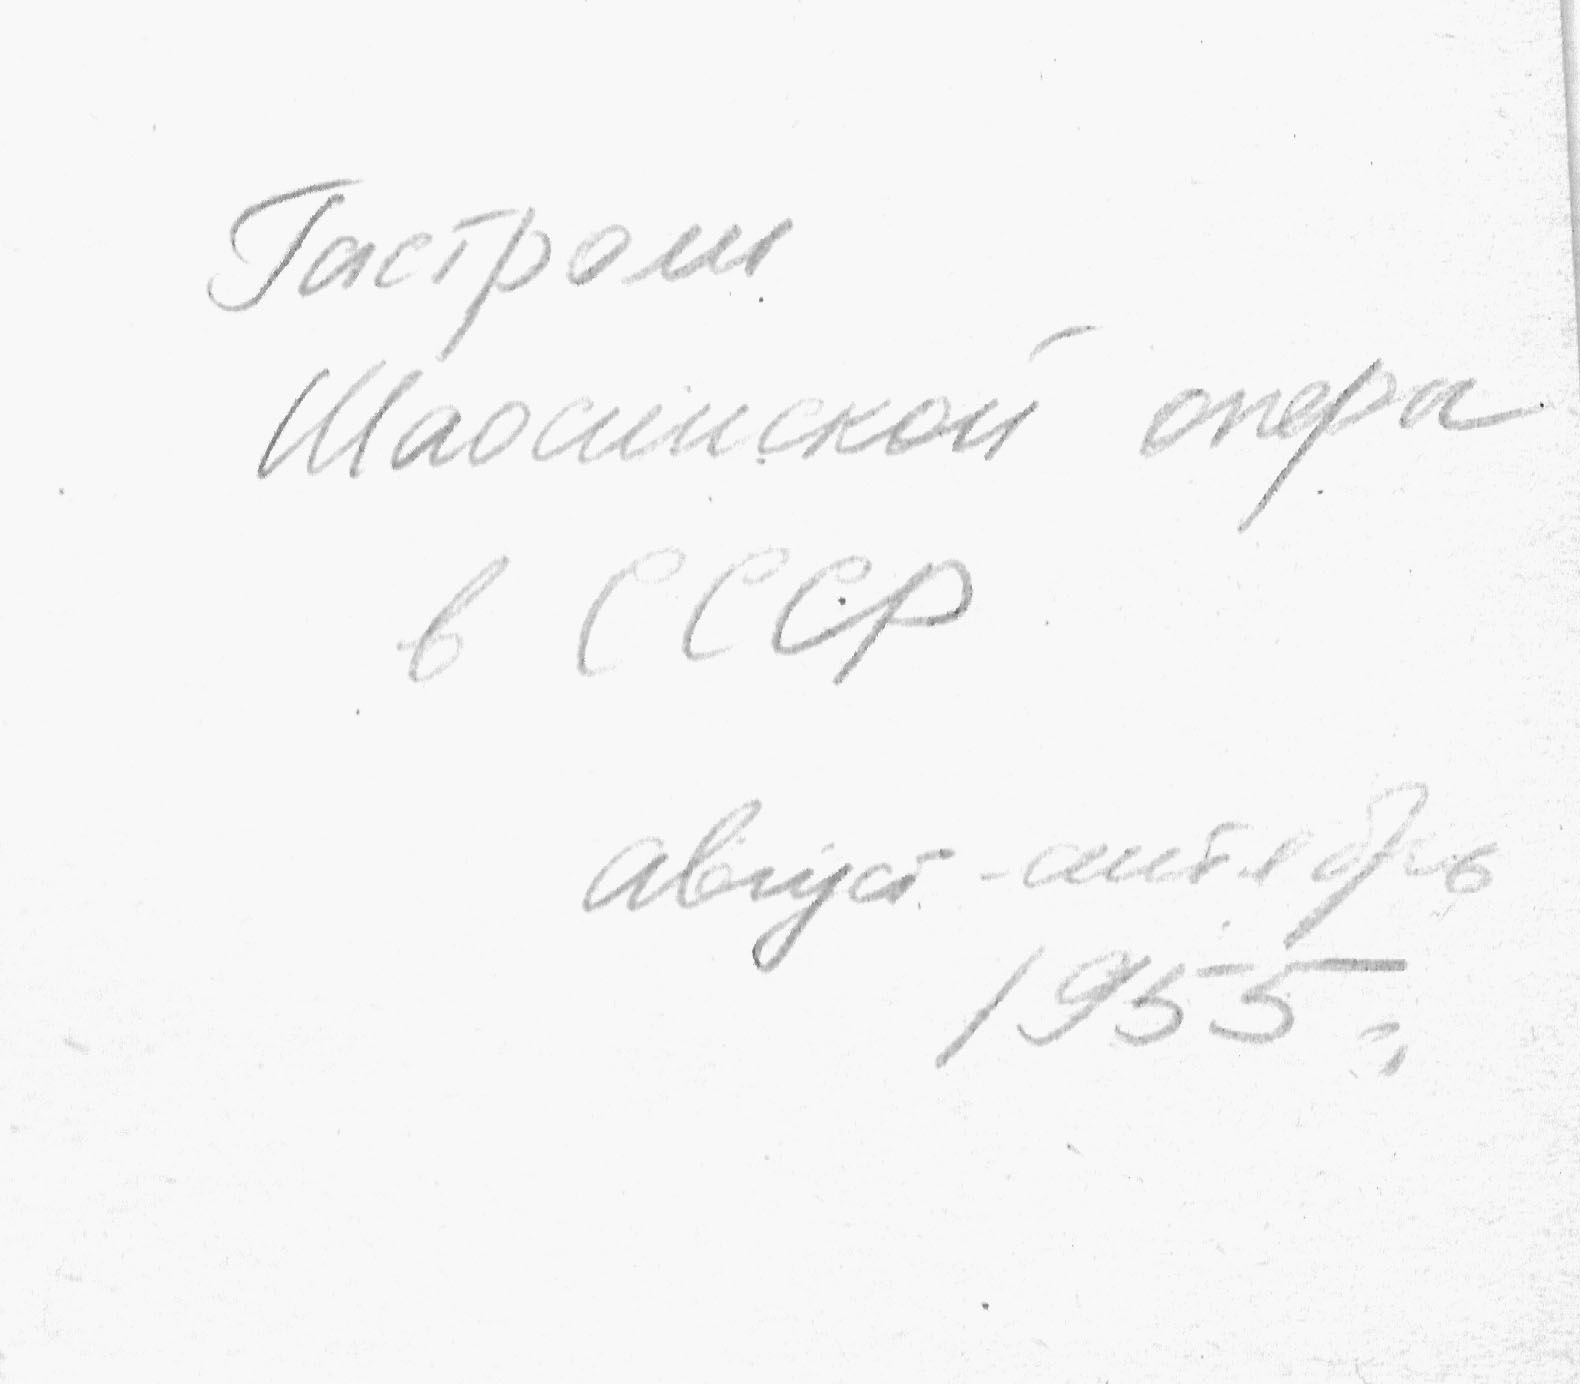 Гастроли
Шаосинской опера
в СССР
август - сентябрь
1955 г.